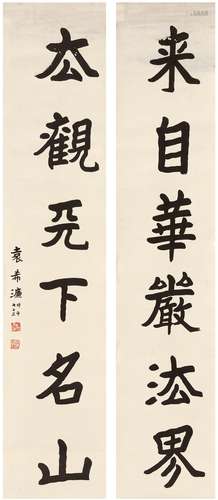 来自華嚴法界
大觀天下名山
袁希濂